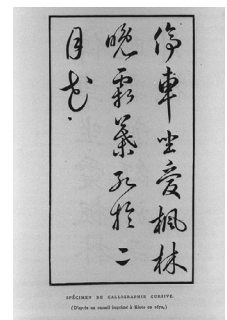 停車坐愛楓林
晚霜葉紅於二
月花
SPÉCIMEN DE CALLIGRAPHIE CURSIVE.
(D'après un recueil imprimé à Kioto en 1670.)